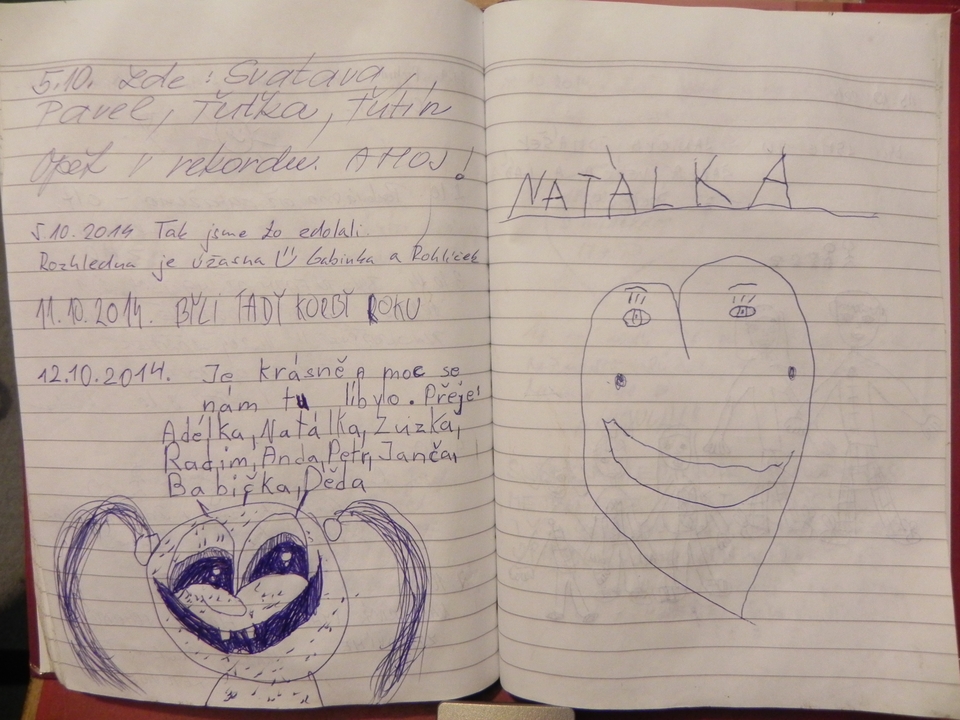 5.10. Zde: Svatava,
Pavel, Ťutka, Ťutín
Opět v rekordu. AHOJ!
5.10.2014 Tak jsme to zdolali.
Rozhledna je úžasná Gabinka a Rohlíček
11.10.2014. BYLI TADY KORBY ROKU
12.10.2014. Je krásně a moc se
nám tu líbylo. Přeje:
Adélka, Natálka, Zuzka,
Radim, Anda, Petr, Janča,
Babička, Děda
NATÁLKA